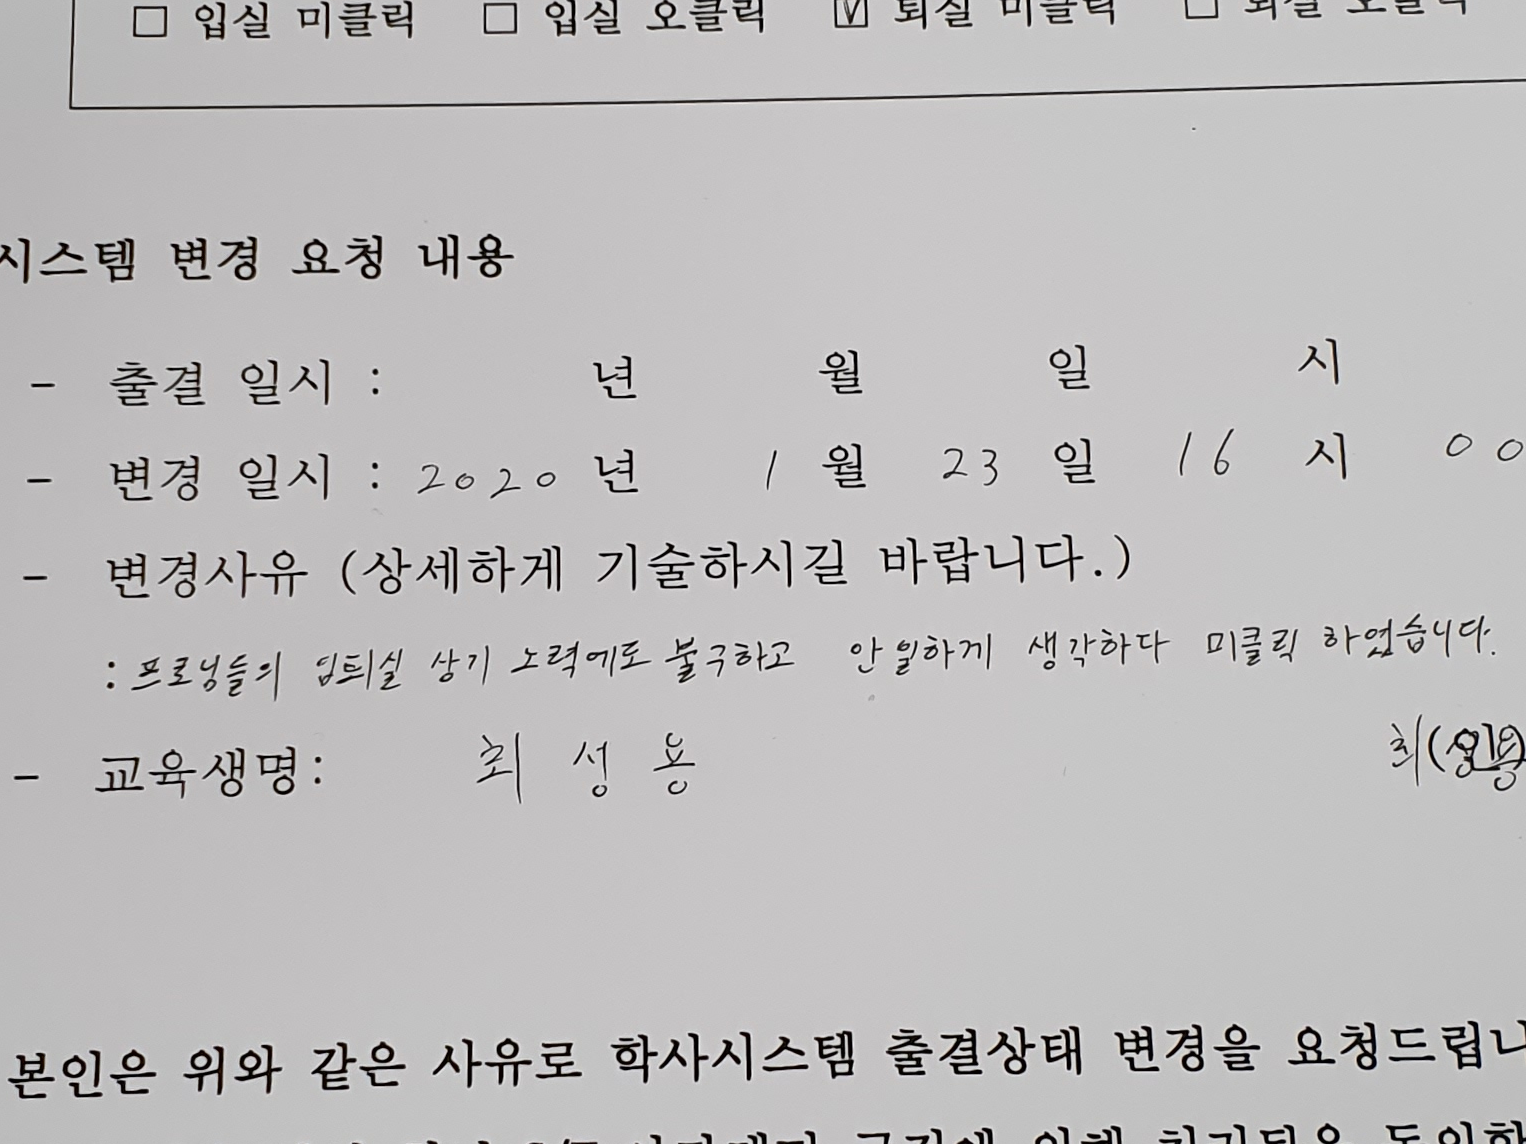 □ 입실 미클릭 □ 입실 오클릭 ☑ 퇴실 미클릭 □ 퇴실 오클릭
시스템 변경 요청 내용
- 출결 일시 : 년 월 일 시
- 변경 일시 : 2020 년 1 월 23 일 16 시 00
- 변경사유 (상세하게 기술하시길 바랍니다.)
: 프로님들의 입퇴실 상기 노력에도 불구하고 안일하게 생각하다 미클릭 하였습니다.
- 교육생명: 최 성 용 최성용 (인)
본인은 위와 같은 사유로 학사시스템 출결상태 변경을 요청드립니